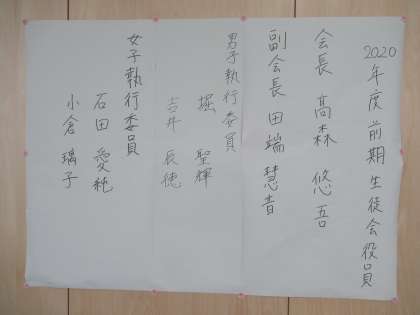 2020年度前期生徒会役員
会長 髙森 悠吾
副会長 田端 慧音
男子執行委員
堀 聖輝
吉井 辰徳
女子執行委員
石田 愛純
小倉 璃子